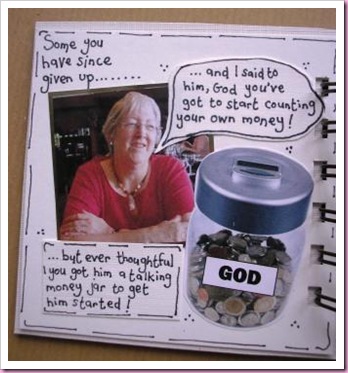 Some you
have since
given up........
... and I said to
him, God you've
got to start counting
your own money!
GOD
... but ever thoughtful
you got him a talking
money jar to get
him started!